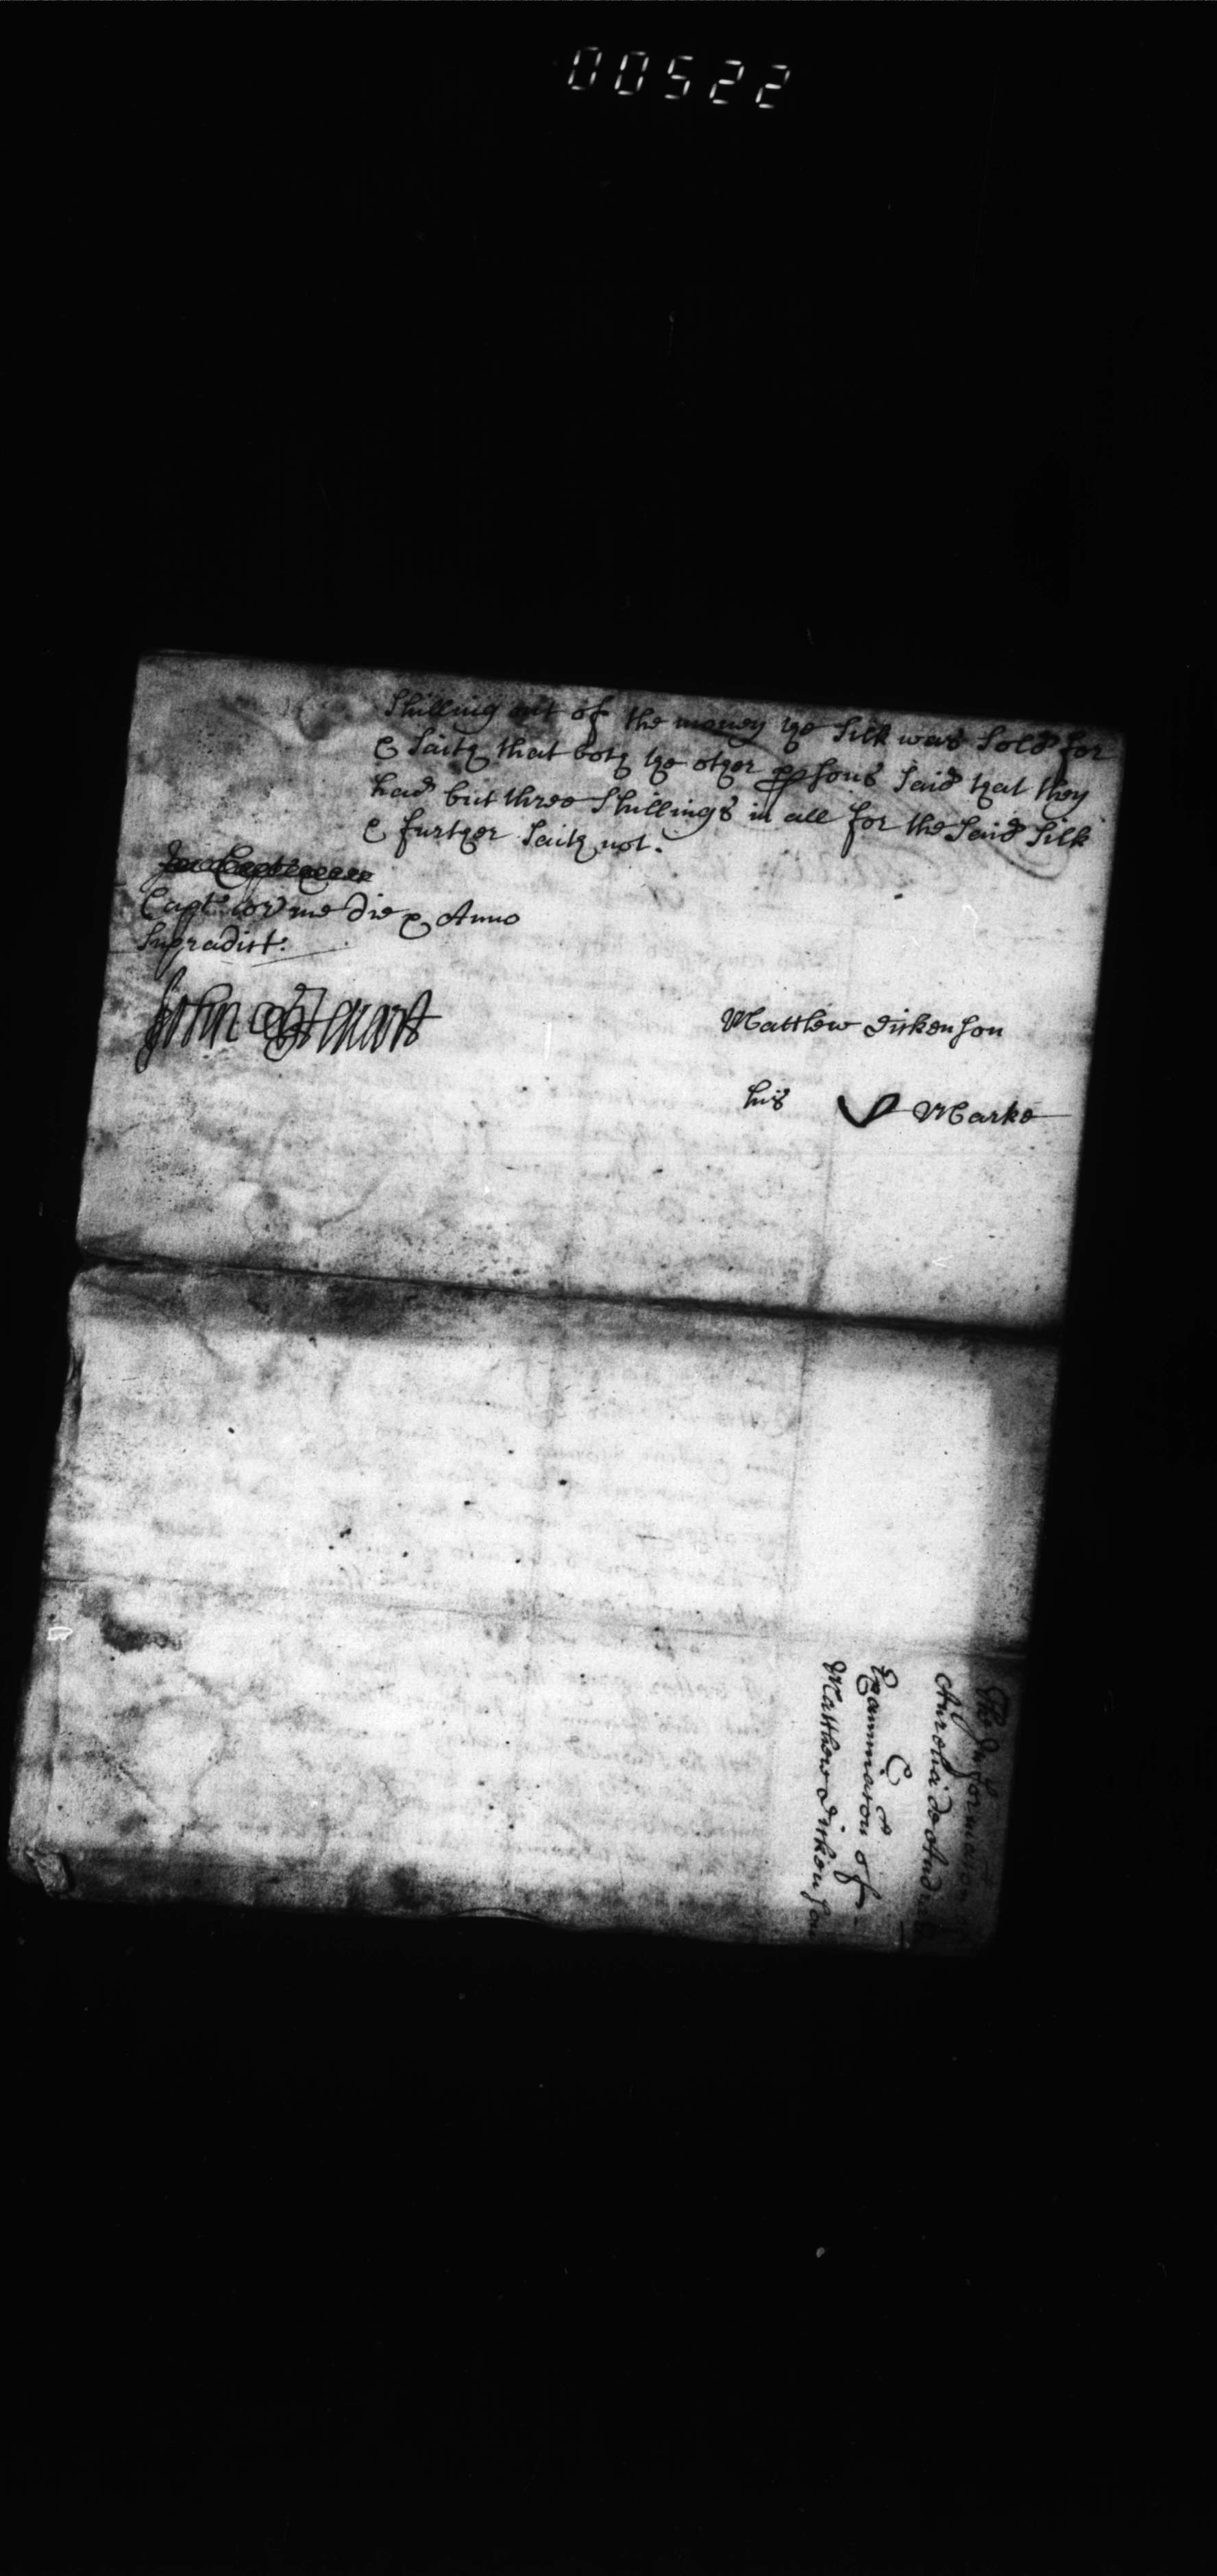 00522
Shilling out of the money the Silk was Sold for
& Saith that both the other psons Said that they
had but three Shillings in all for the Said Silk
& further Saith not.
Capt cor me Die & Anno
Supradict:
John Stewart
Matthew Dickenson
his Marke
The Information of
&
Examinacon of
Matthew Dickenson